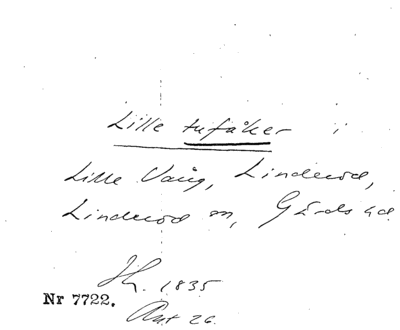 Lille tufåker i
Lille Vång, Linderöd,
Linderöd sn, Gärds hd
Sk. 1835
Nr 7722.
Akt 26